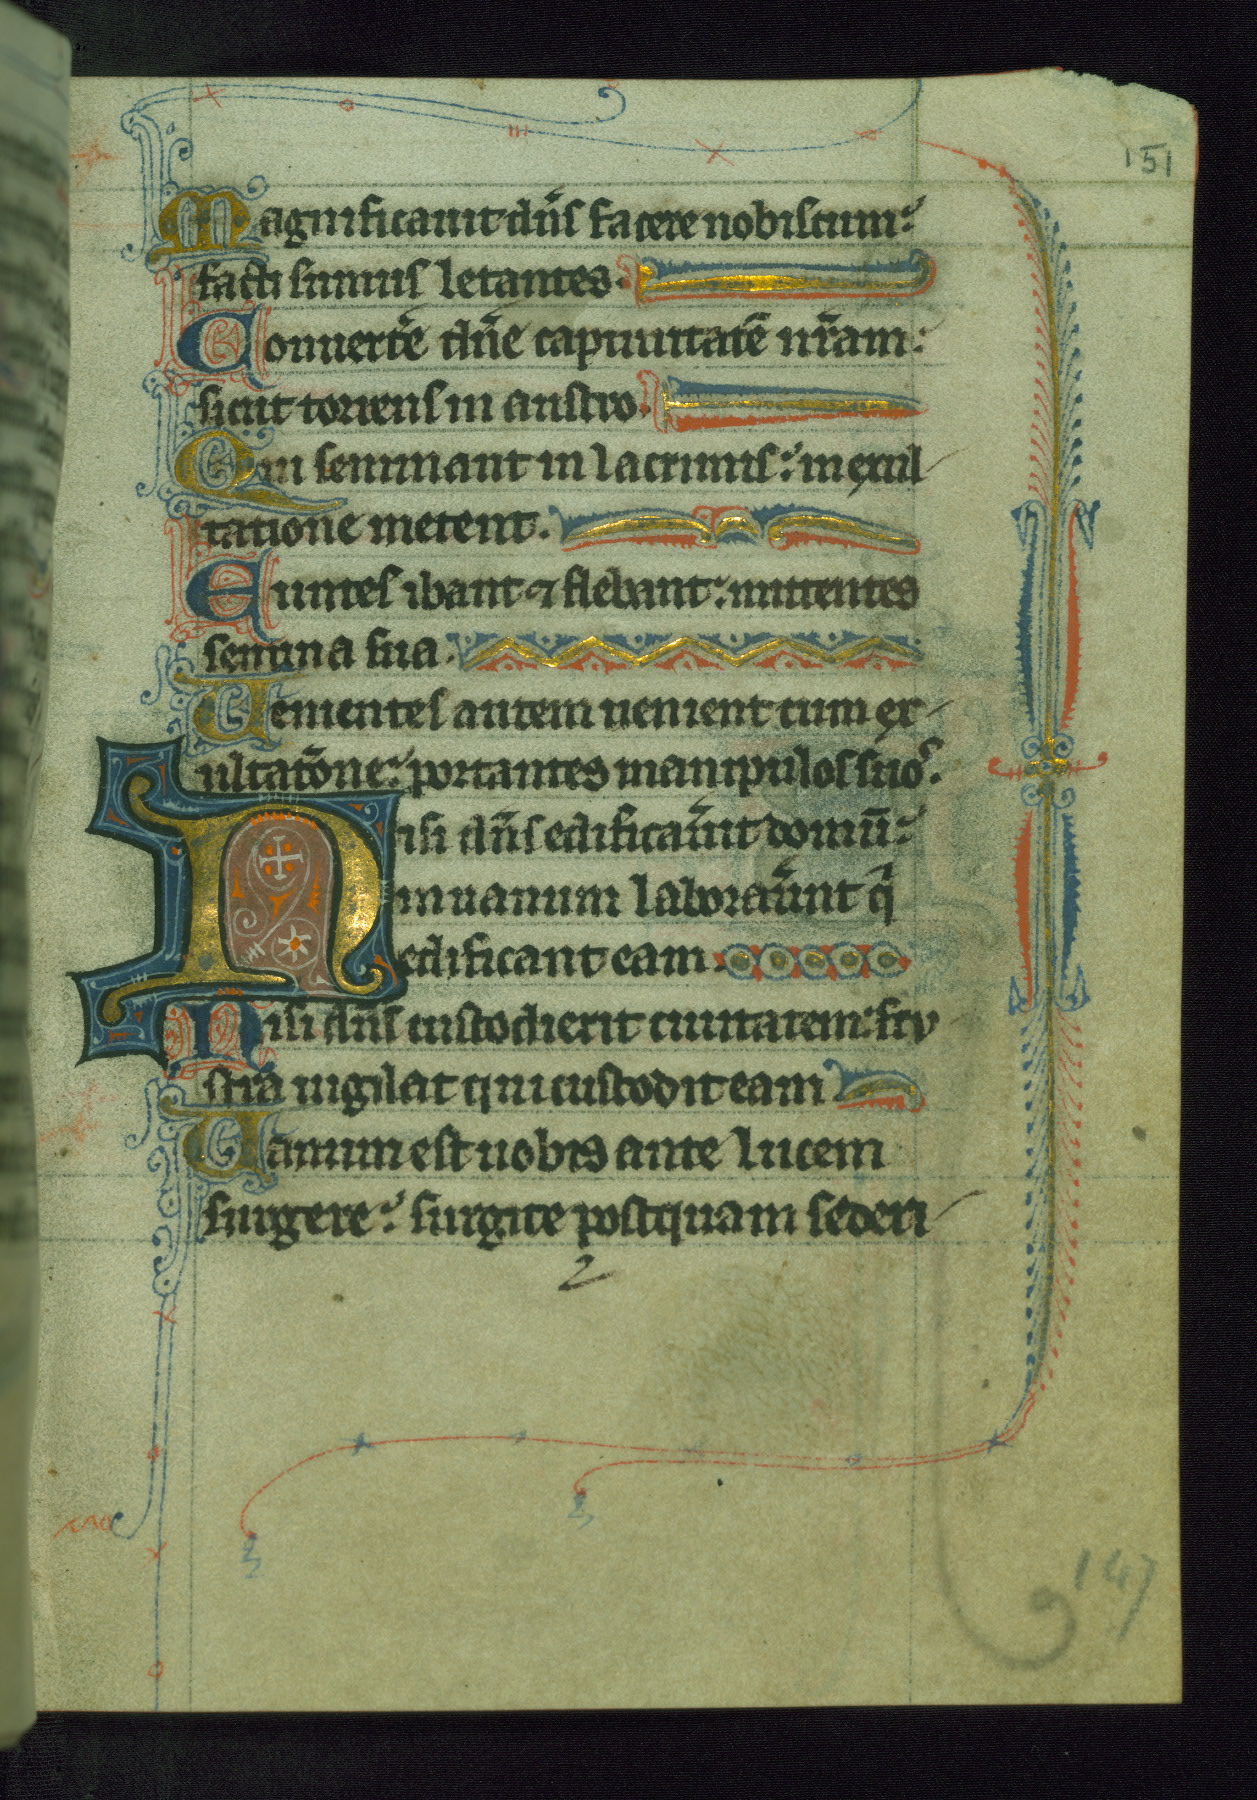 151
Magnificauit dn̄s facere nobiscum:
facti sumus letantes.
Conuerte dn̄e captiuitatē nr̄am:
sicut torrens in austro.
Qui seminant in lacrimis: in exul
tatione metent.
Euntes ibant ⁊ flebant: mittentes
semina sua.
Uenientes autem uenient cum ex
ultatōne: portantes manipulos suos.
Nisi dn̄s edificau̾it domū:
in uanum laborau̾unt q̄
edificant eam.
Nisi dn̄s custodierit ciuitatem: fru
stra uigilat qui custodit eam
Uanum est uobis ante lucem
surgere: surgite postquam sederi
2
147